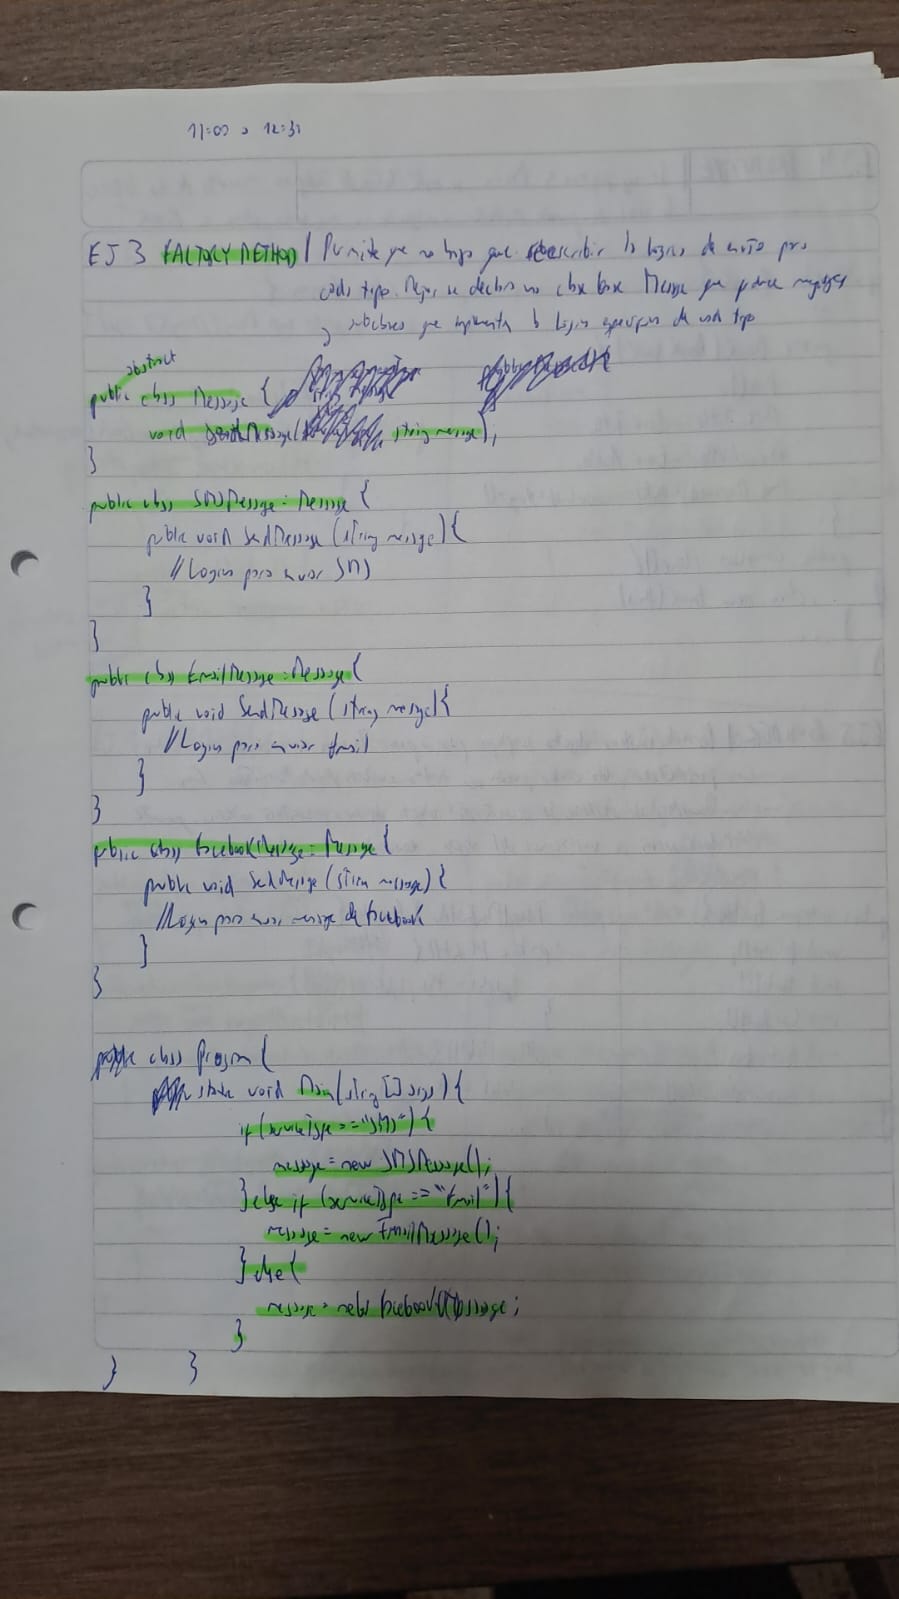 11:00 a 12:31
EJ 3 FACTORY METHOD / Permite que no haya que reescribir la logica de envio para
cada tipo. Mejor se declara una clase base Message que
y subclases que implementa la logica especifica de cada tipo
abstract
public class Message {
void SendMessage( string message);
}
public class SMSMessage : Message {
public void SendMessage (string message){
//Logica para enviar SMS
}
}
public class EmailMessage : Message {
public void SendMessage (string message){
//Logica para enviar Email
}
}
public class FacebookMessage : Message {
public void SendMessage (string message) {
//Logica para enviar mensaje de facebook
}
}
class Program {
static void Main(string [] args) {
if (serviceType == "SMS") {
message = new SMSMessage();
} else if (serviceType == "Email") {
message = new EmailMessage();
} else {
message = new FacebookMessage;
}
} }